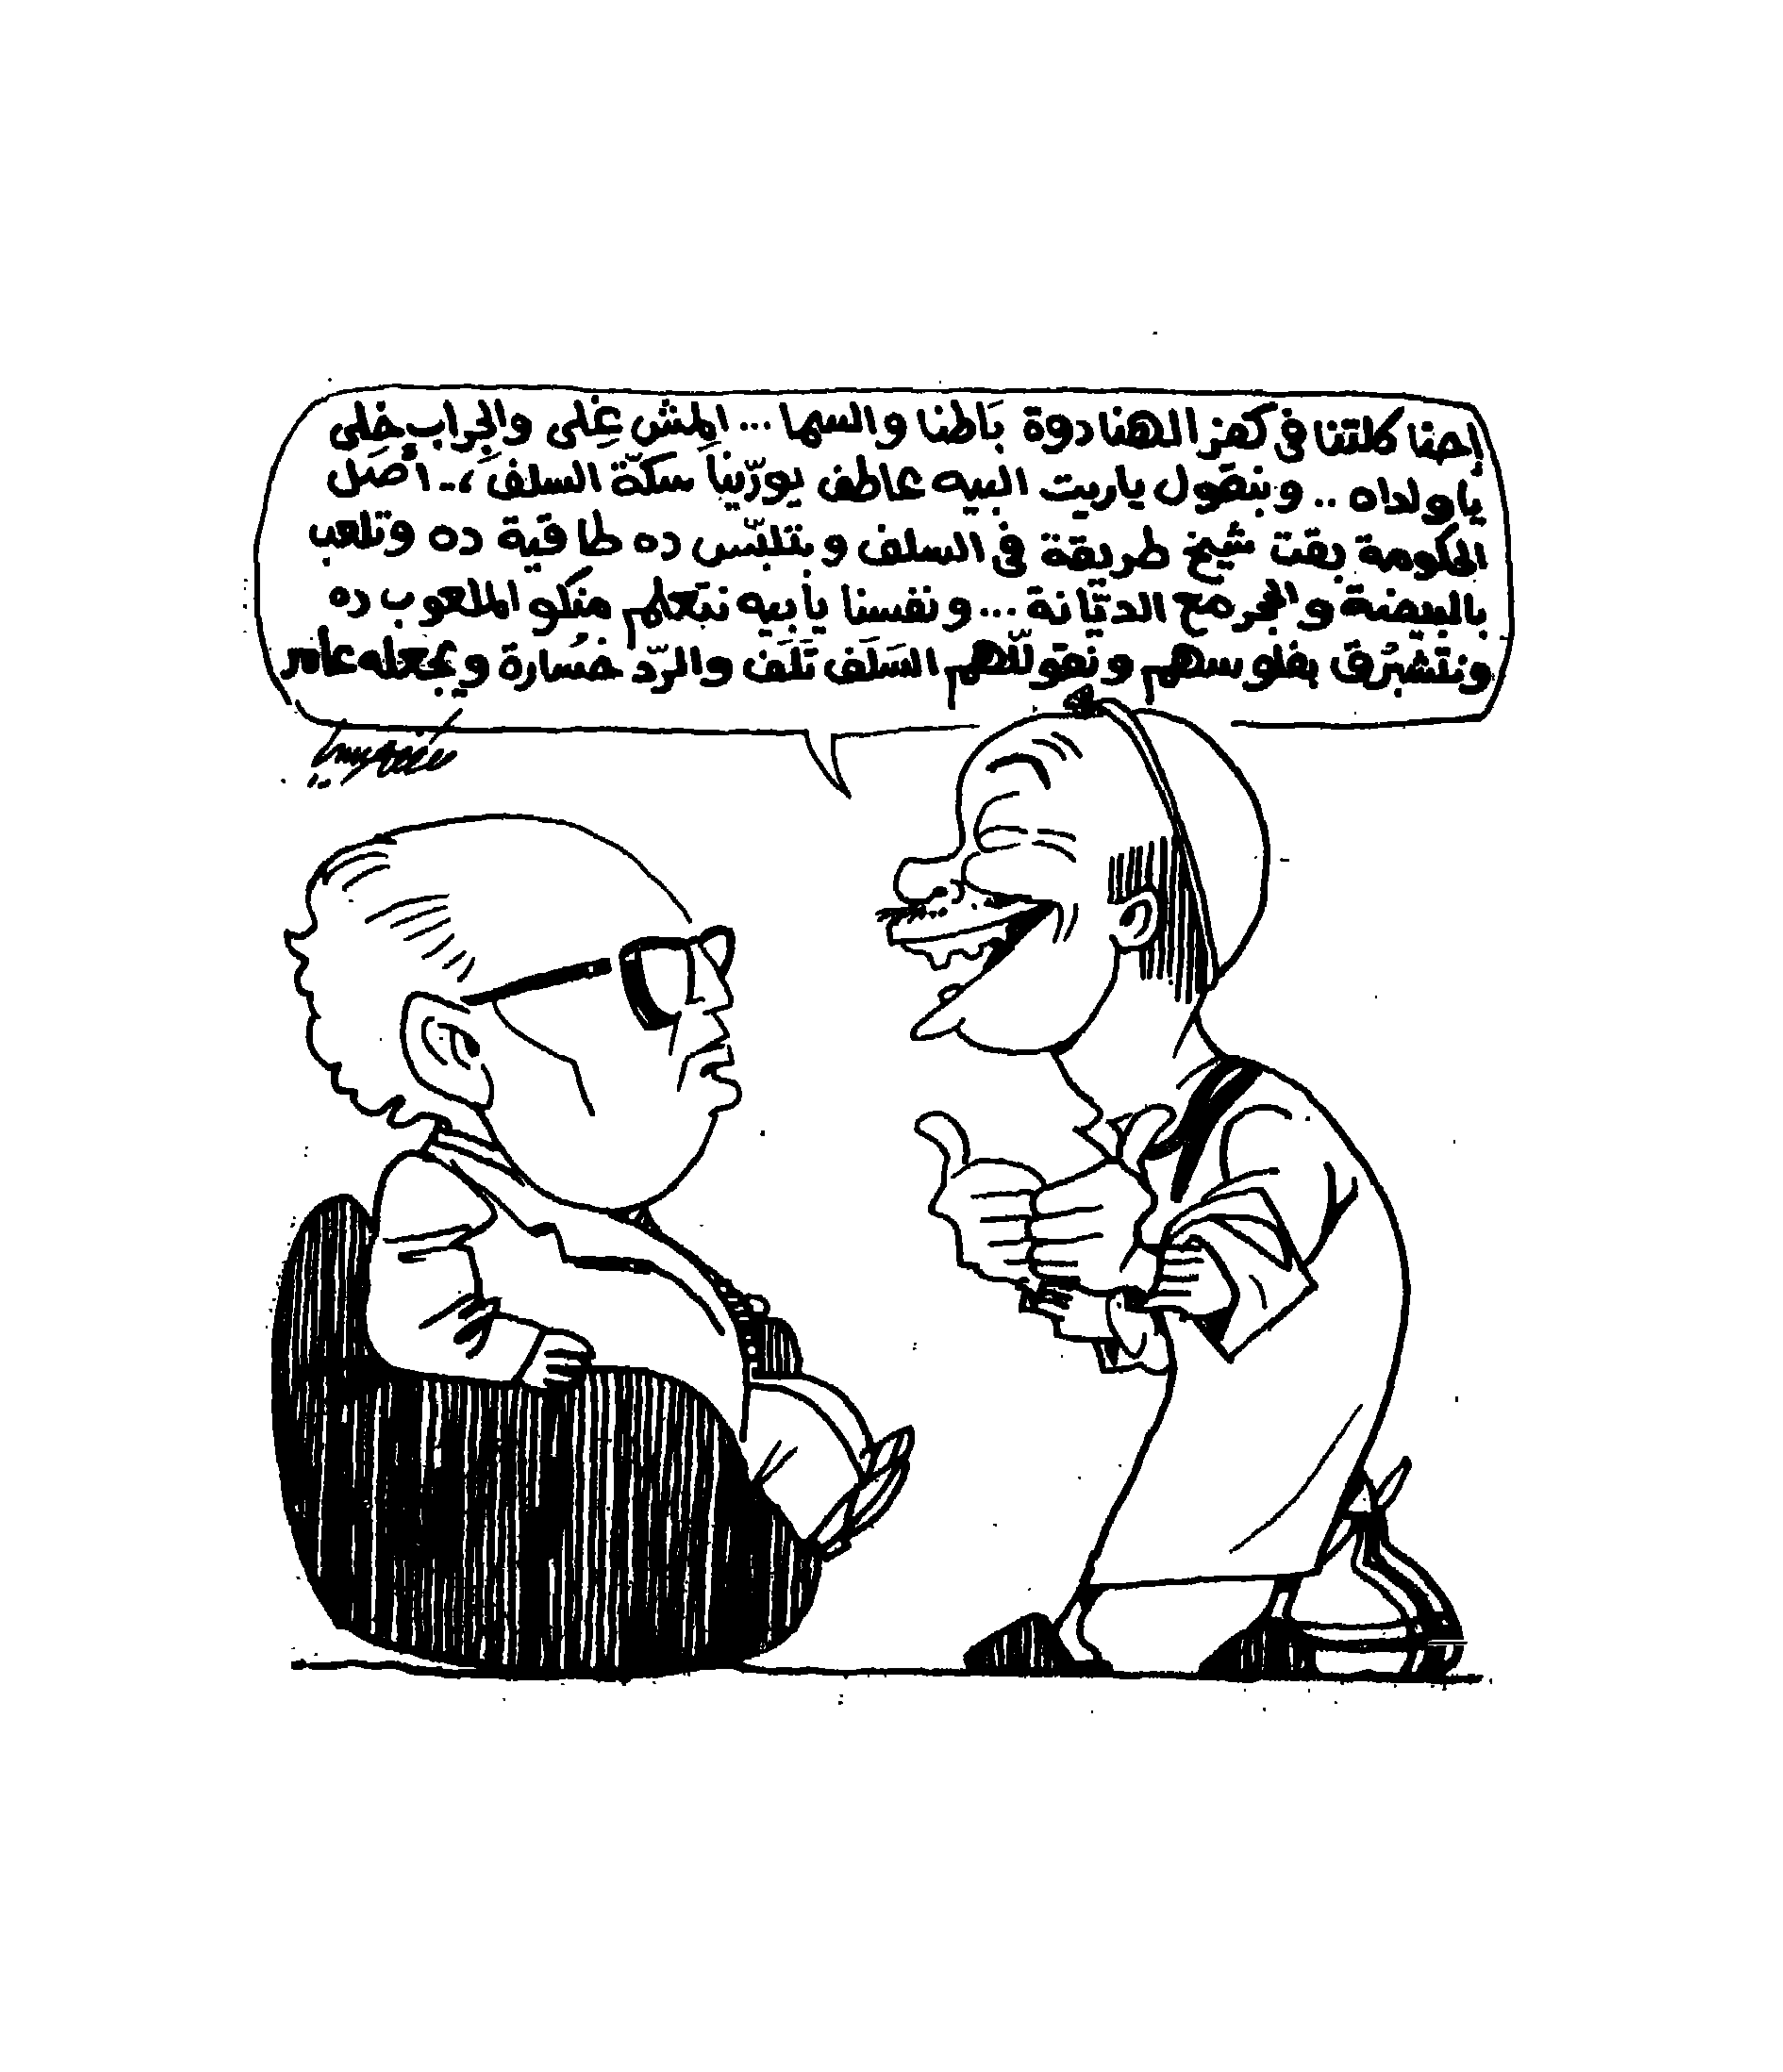 إحنا كلتنا في كفر الهنادوة باطنا والسما ... المش غِلى والجراب خلى
ياولداه .. وبنقول ياريت البيه عاطف يورّينا سكّة السلف ،.. أصل
الحكومة بقت شيخ طريقة في السلف وبتلبّس ده طاقية ده وتلعب
بالبيضة والحجر مع الديّانة ... ونفسنا يابيه نتعلم منكو الملعوب ده
ونتشبرق بفلوسهم ونقوللهم السَلَف تَلَف والردّ خسارة ويجعله عامر